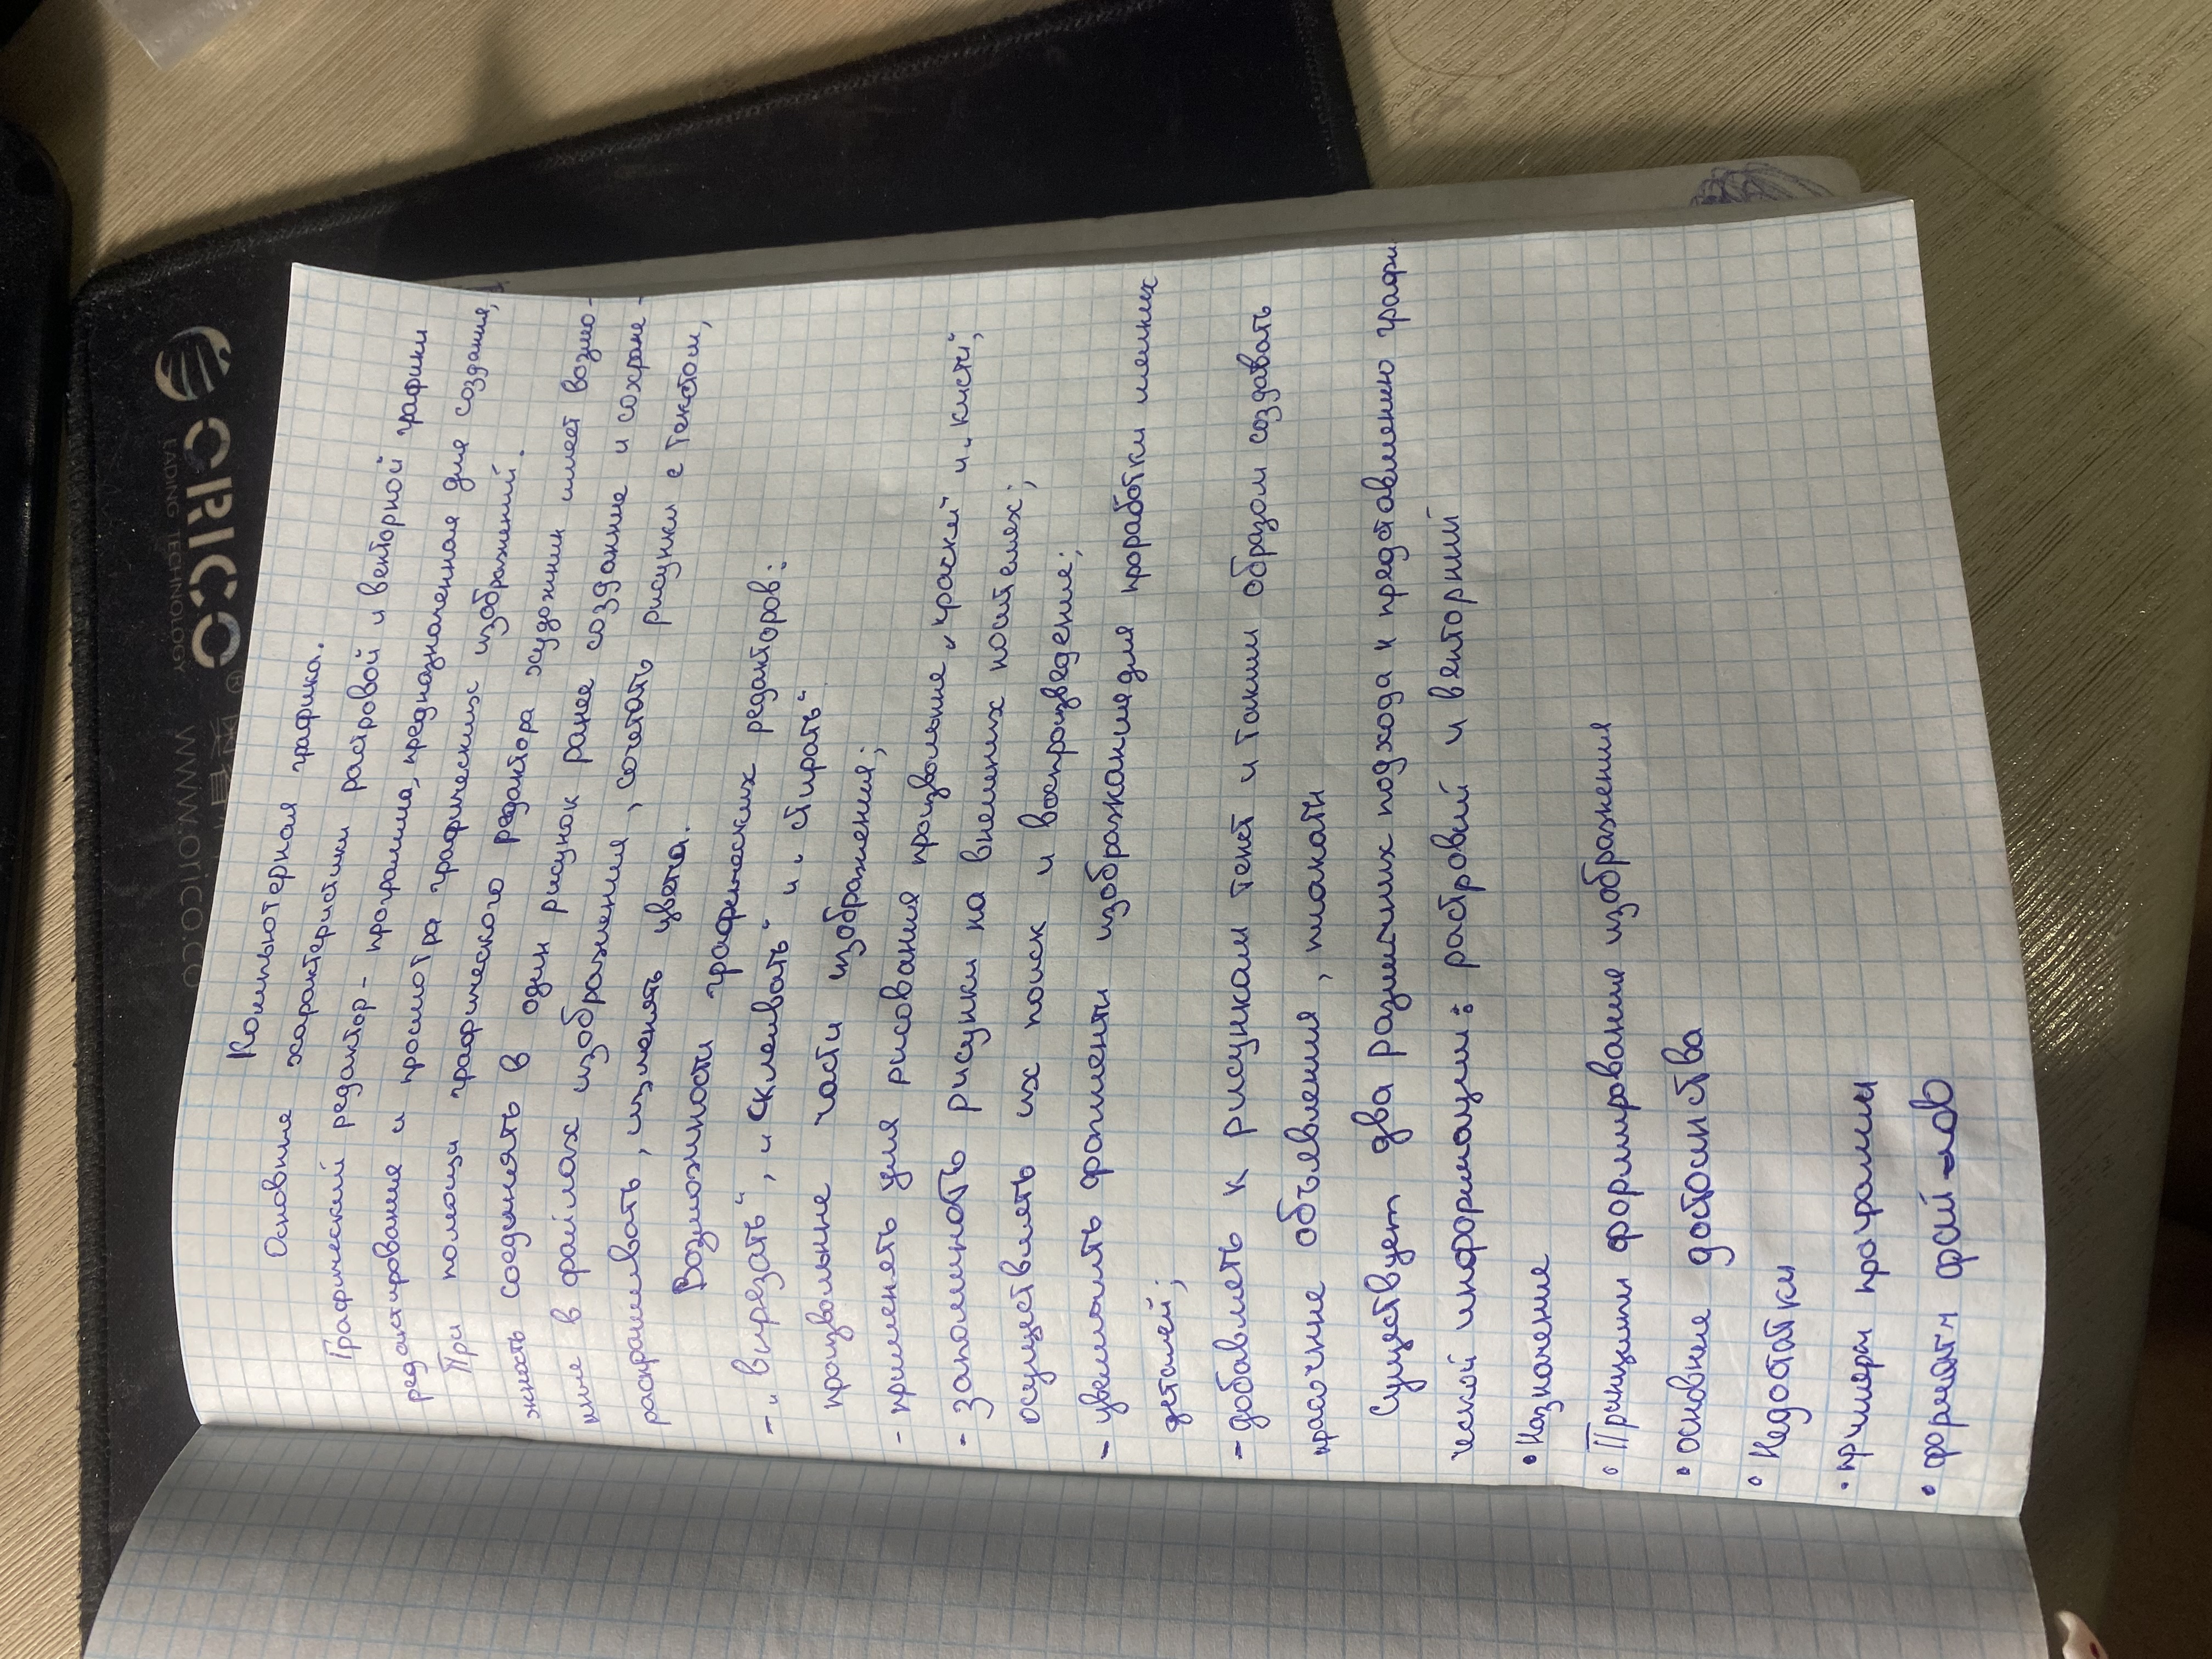 Компьютерная графика.
Основные характеристики растровой и векторной графики
Графический редактор - программа, предназначенная для создания,
редактирования и просмотра графических изображений.
При помощи графического редактора художник имеет возмо-
жность соединять в один рисунок ранее создание и сохране-
ние в файлах изображения, сочетать рисунки с текстом,
раскрашивать, изменять цвета.
Возможности графических редакторов:
- „вырезать“, „склеивать“ и „стирать“
произвольные части изображения;
- применять для рисования произвольные „краски“ и „кисти“;
- запоминать рисунки на внешних носителях;
осуществлять их поиск и воспроизведение;
- увеличить фрагменты изображение для проработки мелких
деталей;
- добавлять к рисункам текст и таким образом создавать
красочные объявления, плакаты
Существует два различных подхода к представлению графи
ческой информации: растровый и векторный
• Назначение
• Принципы формирование изображения
• основные достоинства
• Недостатки
• примеры программы
• форматы файлов
ORICO
®
LEADING TECHNOLOGY
WWW.ORICO.CC